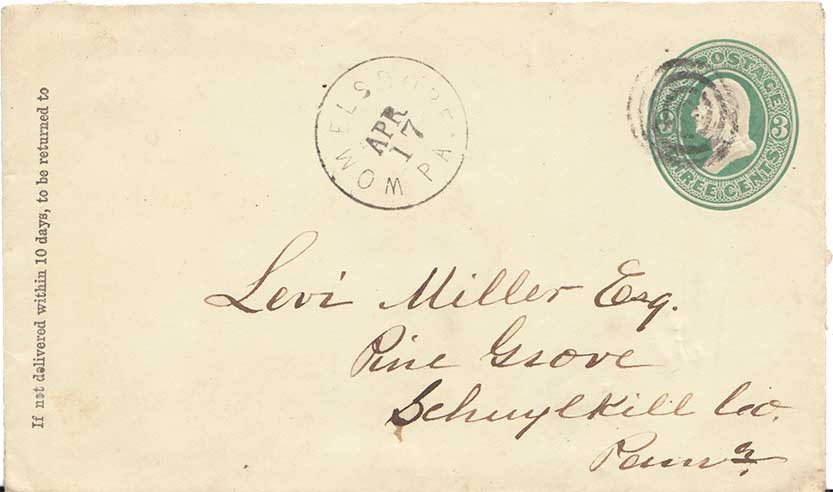 If not delivered within 10 days, to be returned to
WOMELSDORF PA.
APR
17
POSTAGE
3 3
THREE CENTS
Levi Miller Esq.
Pine Grove
Schuylkill Co.
Penna.